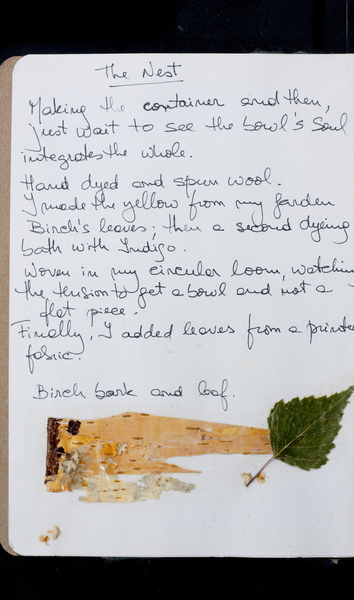 The Nest
Making the container and then,
just wait to see the bowl's soul
integrates the whole.
Hand dyed and spun wool.
I made the yellow from my garden
Birch's leaves; then a second dyeing
bath with Indigo.
Woven in my circular loom, watchin
the tension to get a bowl and not a
flat piece.
Finally, I added leaves from a printe
fabric.
Birch bark and leaf.